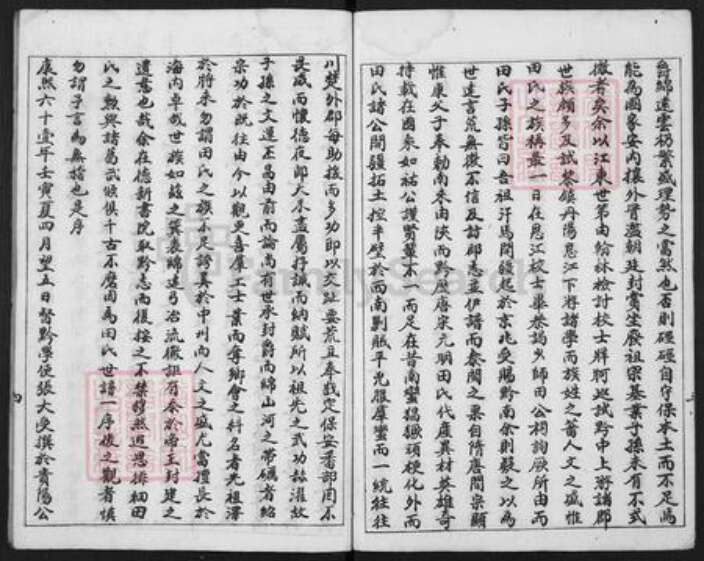 爵綿遠雲礽繁盛理勢之當然也否則碌碌自守保本土而不足為
能為國家安內攘外晉盡朝廷封賞生廢祖宗基業子孫未有不式
微者矣余以江東世弟由翰林檢討校士牂牁巡試黔中上游諸郡
世族頗多及試黎鎮丹陽思江下游諸學而族姓之蕃人文之盛惟
田氏之族稱最一日在思江校士畢恭謁少師田公祠詢厥所由而
田氏子孫皆曰吾祖汗馬開疆起於京兆受賜黔南余則疑之以為
世遠言荒無徵不信及訪郡志並伊譜而奏閱之果自隋唐間宗顯
惟康父子奉勅南來由陝而黔歷唐宋元明田氏代產異材英雄奇
特載在國乘如祐公謹賢輩不一而足在昔南蠻猖獗頑梗化外而
田氏諸公開疆拓土控半壁於西南剿賊平兇服羣蠻而一統往往
川楚外郡每助援而多功即以交趾要荒且奉戡定保安蕃部罔不
畏威而懷德夜郎大不盡屬抒誠而納賦所以祖先之武功喆濯故
子孫之文運丕昌由前而論尚有世承封爵而綿山河之帶礪者紹
宗功於既往由今以觀更喜羣工士業而奪鄉會之科名者光祖澤
於將來勿謂田氏之族不足誇美於中州而人文之盛尤當擅長於
海內卓哉世族如茲之箕裘綿遠弓冶流徽詎有余於帝王封建之
遺意也哉余在德新書院取黔志而復按之不禁穆然遐思採細田
氏之勲與諸葛武候俱千古不磨因為田氏世譜一序後之觀者慎
勿謂予言為無稽也是序
康熙六十壹年壬寅夏四月望五日督黔學使張大受撰於貴陽公
FamilySearch